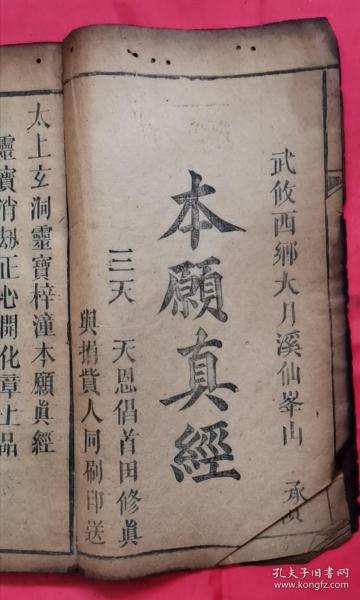 武攸西鄉大月溪仙峯山 承
本願真經
三天 天恩倡首田修眞
與捐貲人同刷印送
太上玄洞靈寳梓潼本願眞經
靈寳消刼正心開化章上品
孔夫子旧书网